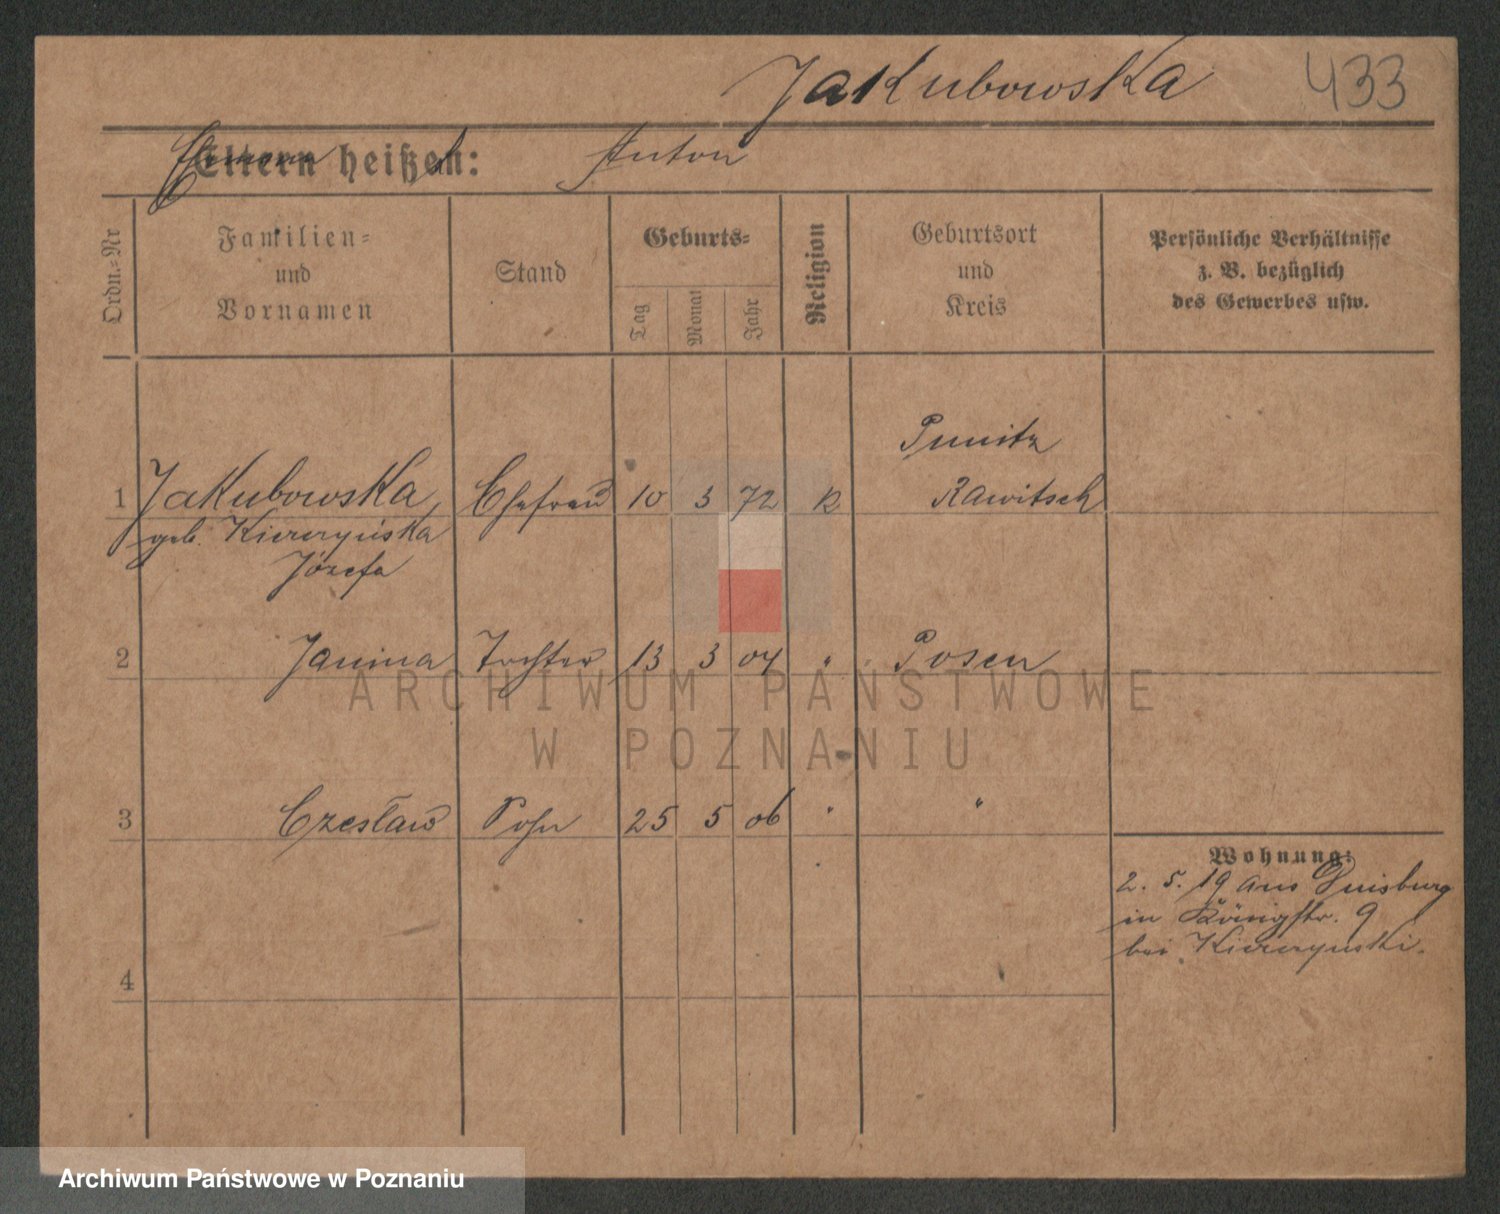 Jakubowska 433
Eltern heißen: Anton
Ordn.-Nr
Familien-
und
Vornamen
Stand
Geburts-
Tag
Monat
Jahr
Religion
Geburtsort
und
Kreis
Persönliche Verhältnisse
z. B. bezüglich
des Gewerbes usw.
Punitz
1 Jakubowska Ehefrau 10 3 72 K Rawitsch
geb. Kierczyńska
Józefa
2 Janina Tochter 13 3 04 " Posen
3 Czesław Sohn 25 5 06 " "
Wohnung:
2. 5. 19 aus Duisburg
in Königstr. 9
bei Kierczynski.
4
ARCHIWUM PAŃSTWOWE
W POZNANIU
Archiwum Państwowe w Poznaniu